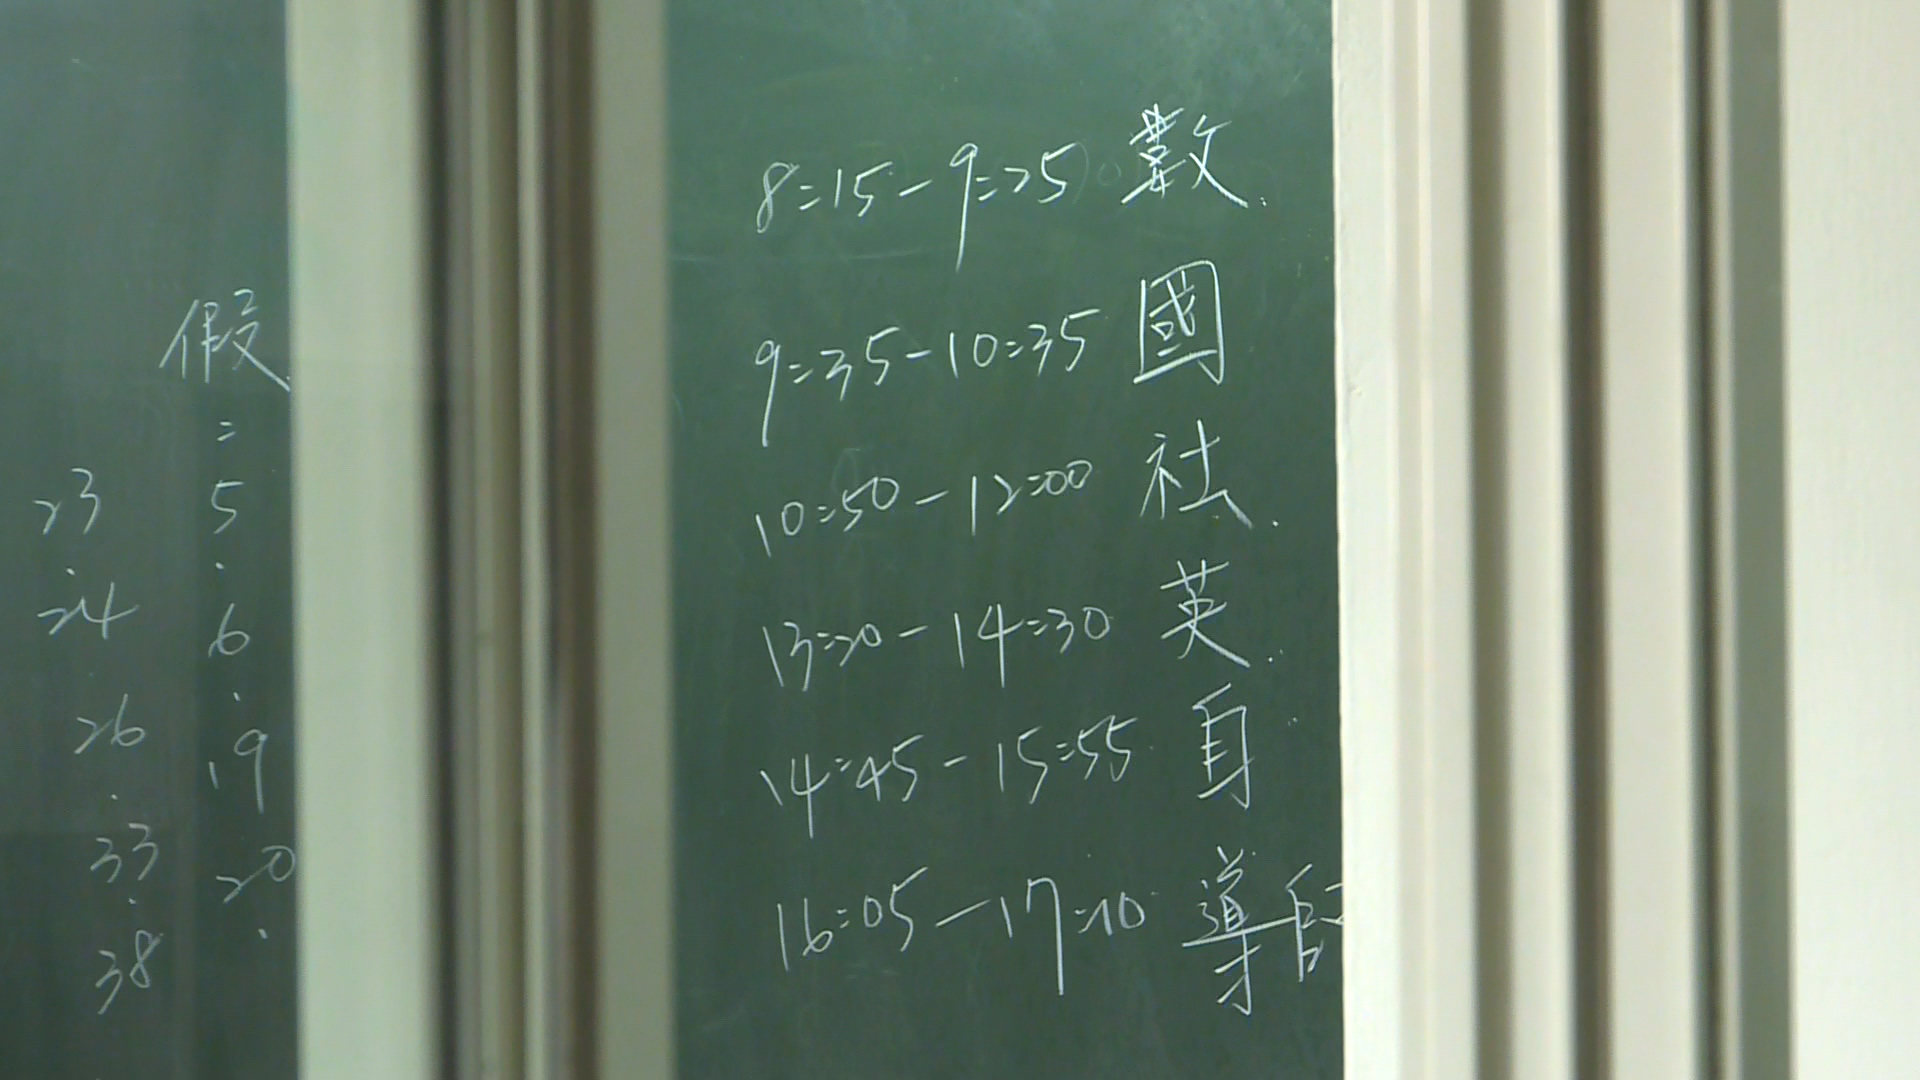 假
=
23 5
.
24 6
.
26 19
.
33 20
.
38
8=15-9=25 數.
9=35-10=35 國
10=50-12=00 社.
13=20-14=30 英.
14=45-15=55 自
16=05-17=10 導師